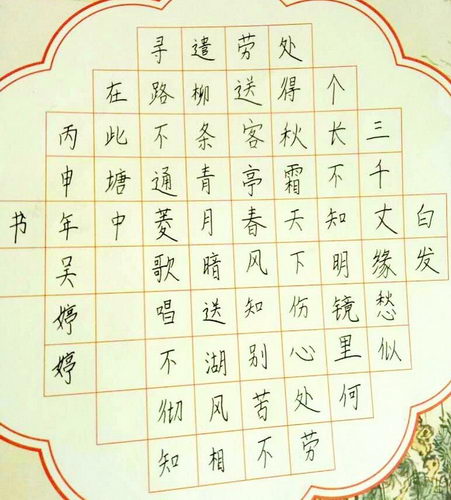 白发
三千丈缘愁似
个长不知明镜里何
处得秋霜天下伤心处劳
劳送客亭春风知别苦不
遣柳条青月暗送湖风相
寻路不通菱歌唱不彻知
在此塘中
丙申年吴婷婷
书